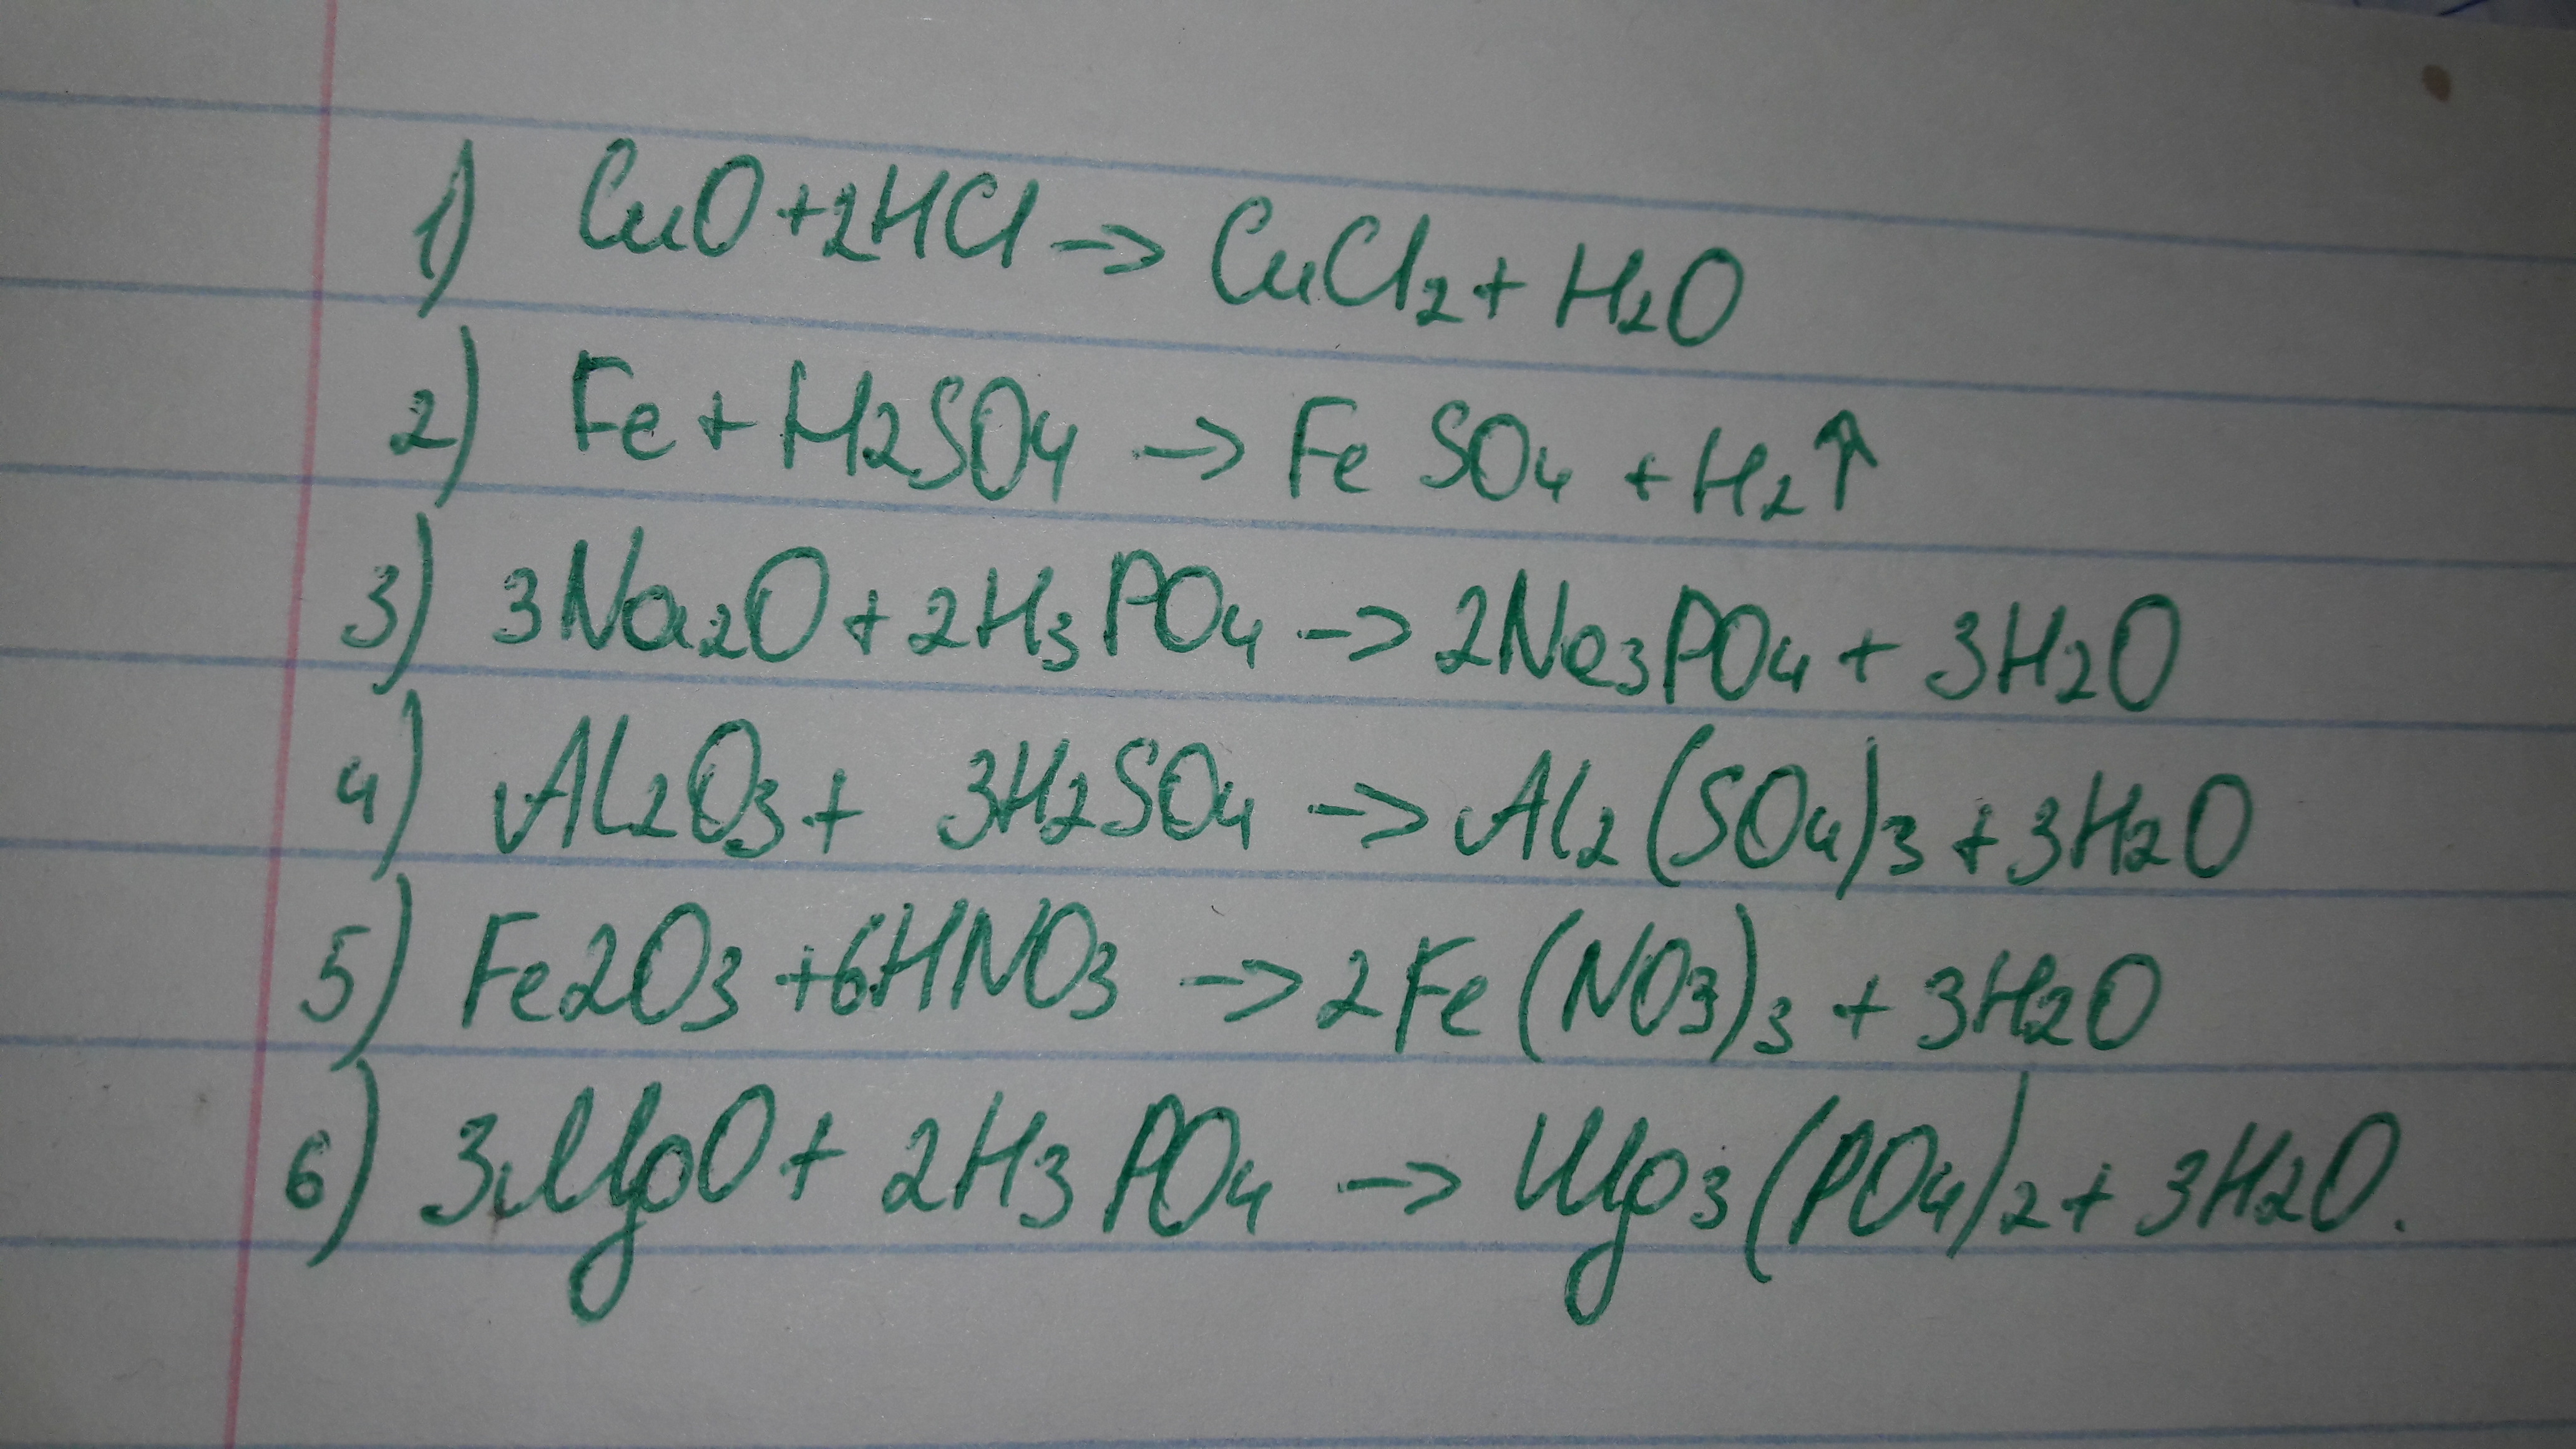 1) CuO + 2HCl -> CuCl₂ + H₂O
2) Fe + H₂SO₄ -> FeSO₄ + H₂↑
3) 3Na₂O + 2H₃PO₄ -> 2Na₃PO₄ + 3H₂O
4) Al₂O₃ + 3H₂SO₄ -> Al₂(SO₄)₃ + 3H₂O
5) Fe₂O₃ + 6HNO₃ -> 2Fe(NO₃)₃ + 3H₂O
6) 3MgO + 2H₃PO₄ -> Mg₃(PO₄)₂ + 3H₂O.